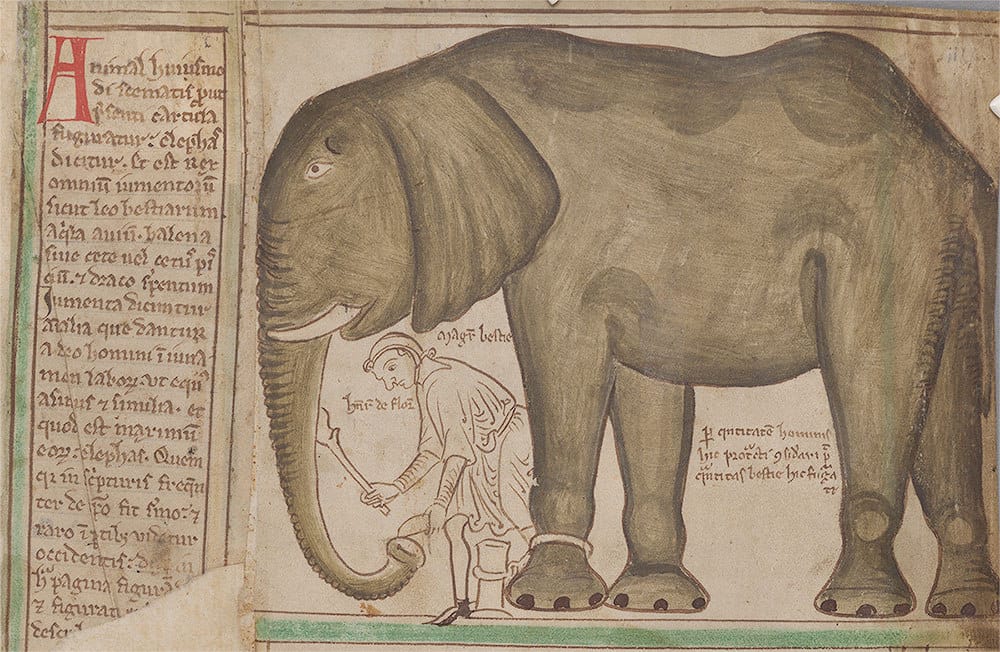 Animal huiusmo
di scematis put
senti cartula
figuratur: elephas
dicitur. Et est rex
omniū iumentoꝝ
sicut leo bestiarum
aqila auiū. balena
siue cete uel cetus pis
ciū. ⁊ draco serpentum
Iumenta dicuntur
aīalia que dantur
a deo homini ī iuua
men laboꝝ. ut equs
asinus ⁊ similia. et
quod est maximum
eoꝝ: elephas. Quem
qr in scpturis freqn
ter de eo fit smo: ⁊
raro ī ptibꝫ uidetur
occidentis: de
h pagina figura
⁊ figurati
descri
Magr bestie
Henr de Flor
ꝑ qntitatē hominis
hic protracti ꝯsidari p
qntitas bestie hic figa
te